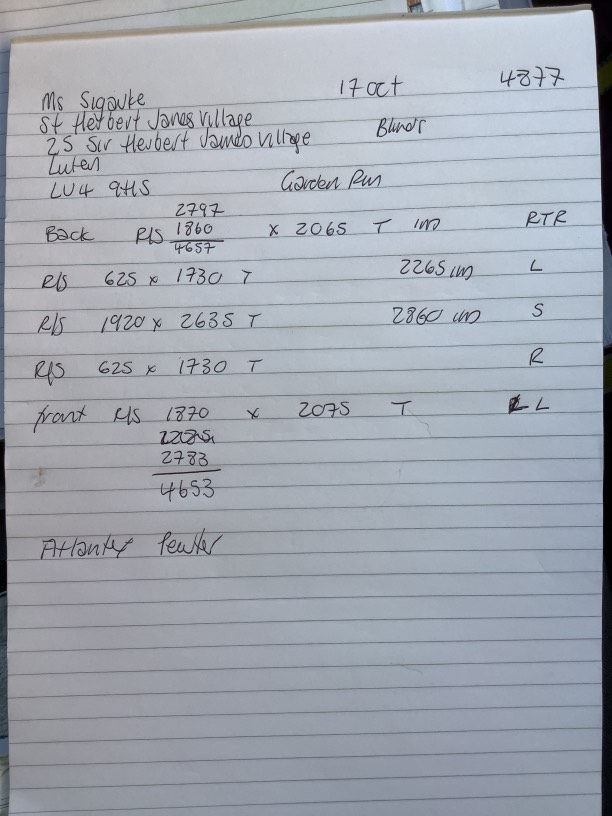 Ms Sigauke 17 Oct 4877
St Herbert Janes Village
25 Sir Herbert Janes Village Blinds
Luton
LU4 9HS Garden Rm
2797
Back R/S 1860 x 2065 T IM RTR
4657
R/S 625 x 1730 T 2265 IM L
R/S 1920 x 2635 T 2860 IM S
R/S 625 x 1730 T R
front R/S 1870 x 2075 T L
2783
4653
Pewter